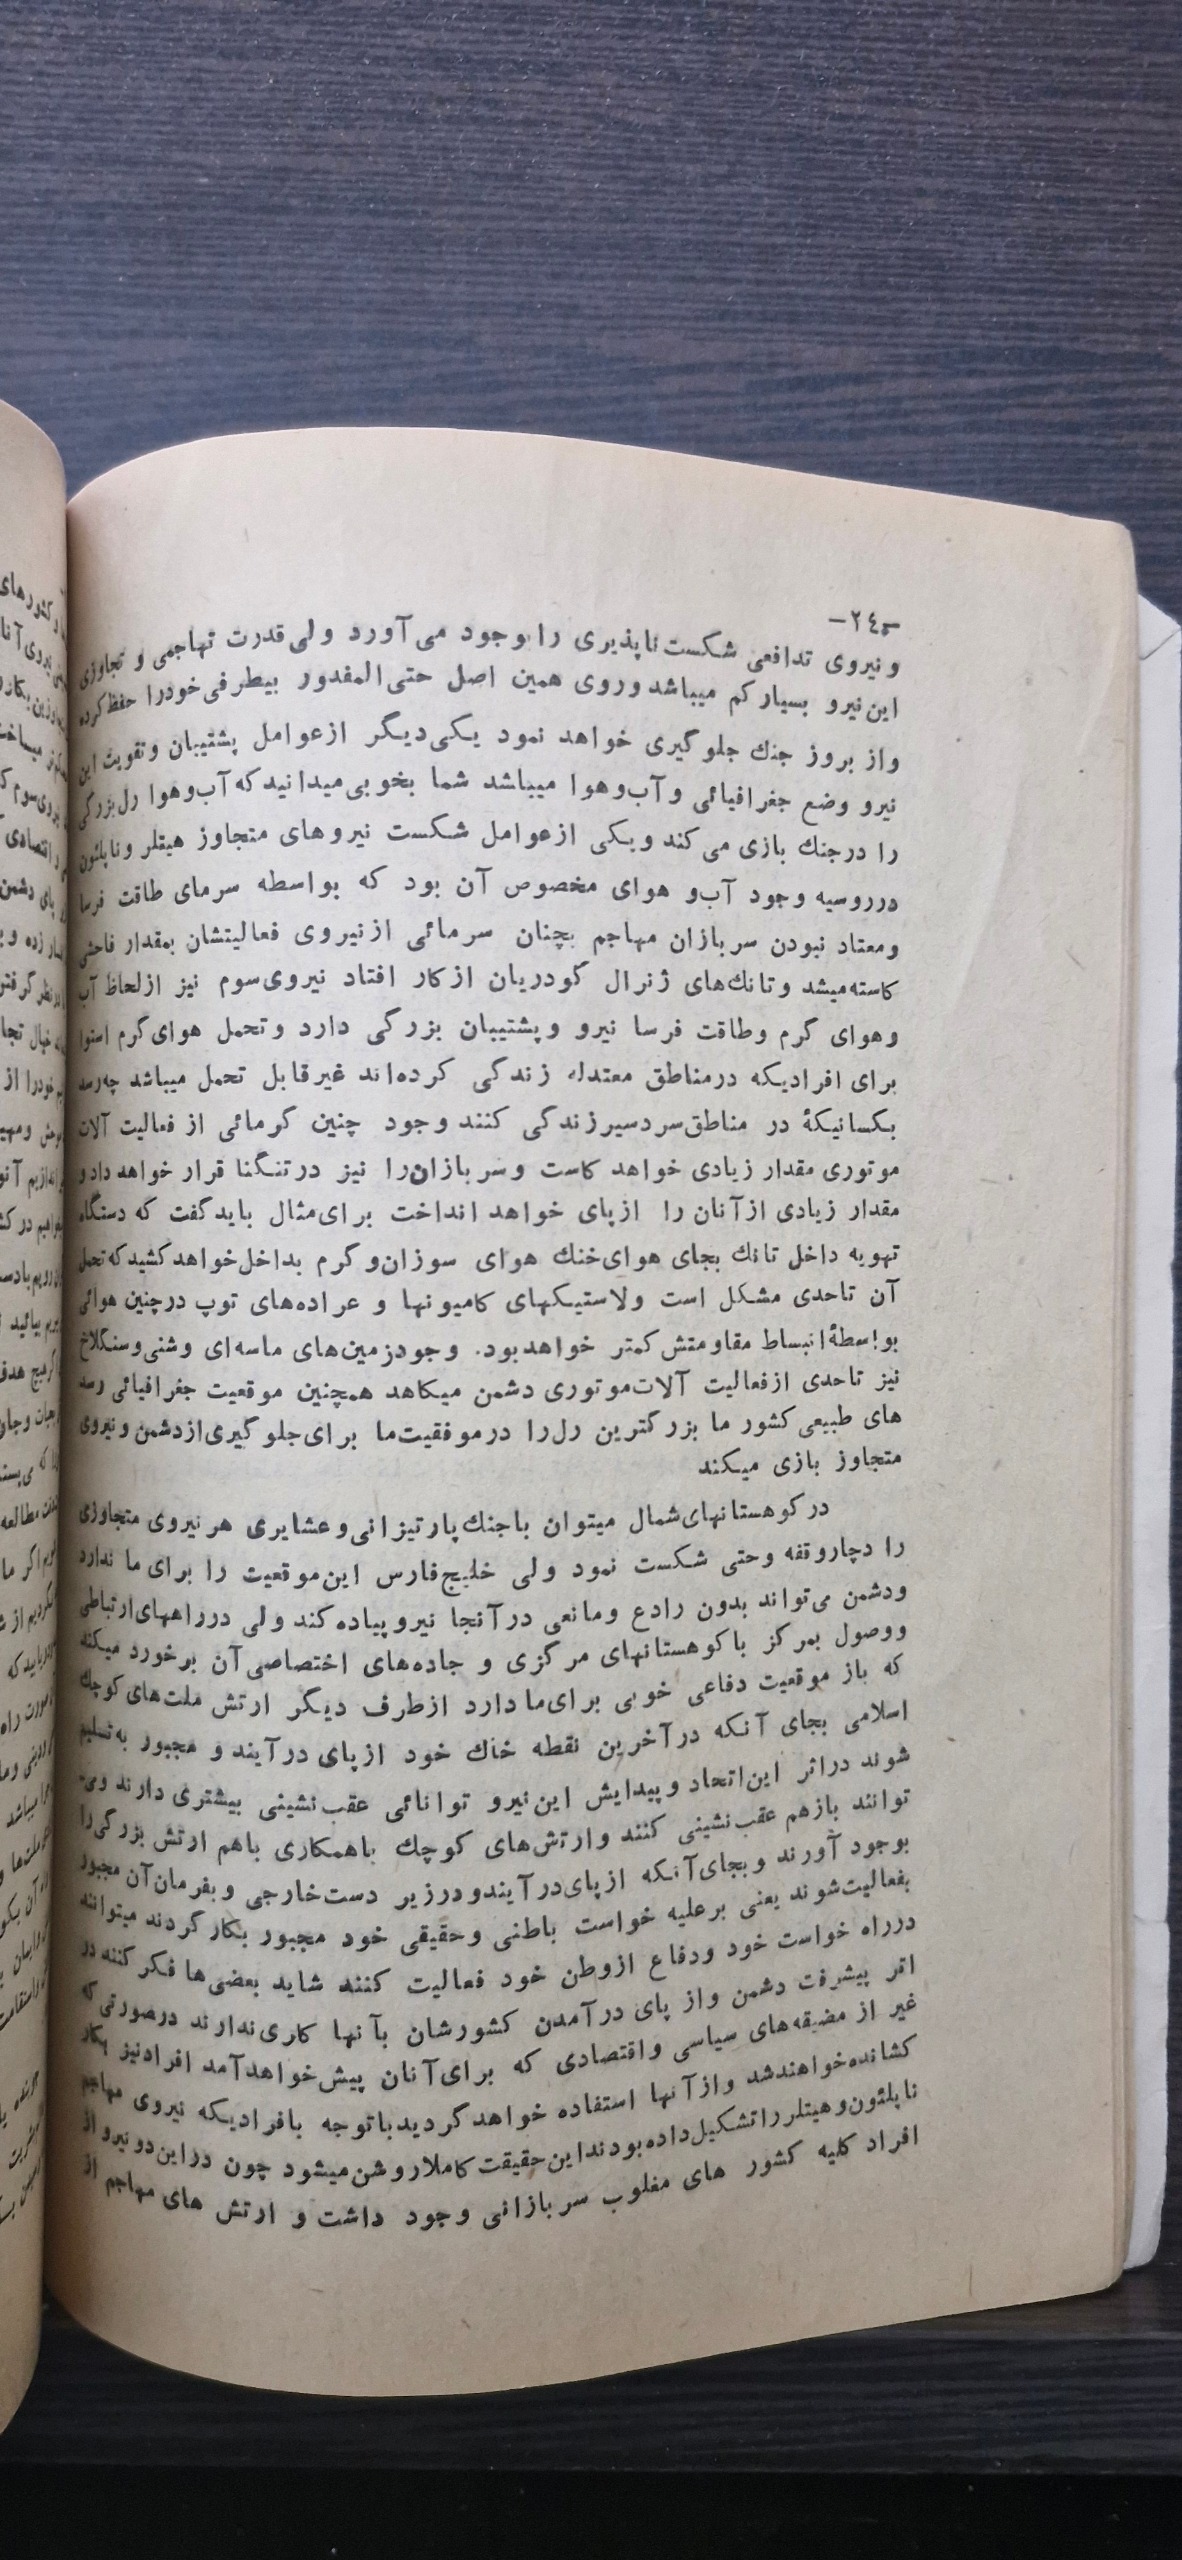 -۲٤-
و نیروی تدافعی شکست ناپذیری را بوجود می آورد ولی قدرت تهاجمی و تجاوزی
این نیرو بسیار کم میباشد و روی همین اصل حتی المقدور بیطرفی خودرا حفظ کرده
و از بروز جنك جلوگیری خواهد نمود یکی دیگر از عوامل پشتیبان و تقویت این
نیرو وضع جغرافیائی و آب و هوا میباشد شما بخوبی میدانید که آب و هوا رل بزرگی
را در جنك بازی می کند و یکی از عوامل شکست نیروهای متجاوز هیتلر و ناپلئون
در روسیه وجود آب و هوای مخصوص آن بود که بواسطه سرمای طاقت فرسا
و معتاد نبودن سربازان مهاجم بچنان سرمائی از نیروی فعالیتشان بمقدار فاحشی
کاسته میشد و تانك های ژنرال گودریان از کار افتاد نیروی سوم نیز از لحاظ آب
و هوای گرم و طاقت فرسا نیرو و پشتیبان بزرگی دارد و تحمل هوای گرم استوا
برای افرادیکه در مناطق معتدله زندگی کرده اند غیر قابل تحمل میباشد چه رسد
بکسانیکۀ در مناطق سردسیر زندگی کنند وجود چنین گرمائی از فعالیت آلات
موتوری مقدار زیادی خواهد کاست و سربازان را نیز در تنگنا قرار خواهد داد و
مقدار زیادی از آنان را از پای خواهد انداخت برای مثال باید گفت که دستگاه
تهویه داخل تانك بجای هوای خنك هوای سوزان و گرم بداخل خواهد کشید که تحمل
آن تاحدی مشکل است و لاستیکهای کامیونها و عراده های توپ در چنین هوائی
بواسطۀ انبساط مقاومتش کمتر خواهد بود. وجود زمین های ماسه ای و شنی و سنگلاخ
نیز تاحدی از فعالیت آلات موتوری دشمن میکاهد همچنین موقعیت جغرافیائی رسد
های طبیعی کشور ما بزرگترین رل را در موفقیت ما برای جلوگیری از دشمن و نیروی
متجاوز بازی میکند
در کوهستانهای شمال میتوان با جنك پارتیزانی و عشایری هر نیروی متجاوزی
را دچار وقفه و حتی شکست نمود ولی خلیج فارس این موقعیت را برای ما ندارد
و دشمن می تواند بدون رادع و مانعی در آنجا نیرو پیاده کند ولی در راههای ارتباطی
و وصول بمرکز با کوهستانهای مرکزی و جاده های اختصاصی آن برخورد میکند
که باز موقعیت دفاعی خوبی برای ما دارد از طرف دیگر ارتش ملت های کوچك
اسلامی بجای آنکه در آخرین نقطه خاك خود از پای در آیند و مجبور به تسلیم
شوند در اثر این اتحاد و پیدایش این نیرو توانائی عقب نشینی بیشتری دارند و می-
توانند بازهم عقب نشینی کنند و ارتش های کوچك باهمکاری باهم ارتش بزرگی را
بوجود آورند و بجای آنکه از پای در آیند و در زیر دست خارجی و بفرمان آن مجبور
بفعالیت شوند یعنی بر علیه خواست باطنی و حقیقی خود مجبور بکار گردند میتوانند
در راه خواست خود و دفاع از وطن خود فعالیت کنند شاید بعضی ها فکر کنند در
اثر پیشرفت دشمن و از پای در آمدن کشورشان بآنها کاری ندارند در صورتی که
غیر از مضیقه های سیاسی و اقتصادی که برای آنان پیش خواهد آمد افراد نیز بکار
کشانده خواهند شد و از آنها استفاده خواهد گردید باتوجه بافرادیکه نیروی مهاجم
ناپلئون و هیتلر را تشکیل داده بودند این حقیقت کاملا روشن میشود چون در این دو نیرو از
افراد کلیه کشور های مغلوب سربازانی وجود داشت و ارتش های مهاجم از